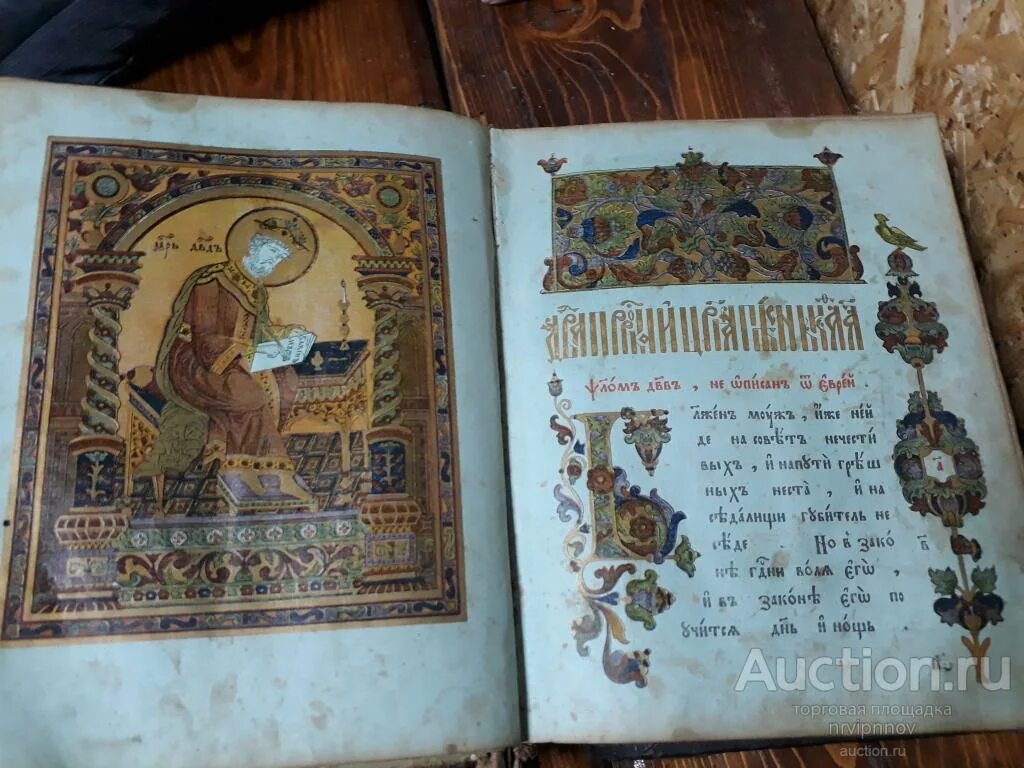 Црь Двдъ
Ѱло́мъ дв҃въ, не ѡ҆пи́санъ ѿ є҆врє́й.
Блже́нъ моужъ, и҆́же не и҆
де на совѣ́тъ нечести
выхъ, и҆ на пути грѣ́ш
ныхъ не ста̀, и҆ на
сѣда́лищи губи́тель не
сѣ́де Но в зако
нѣ гдни во́ля є҆гѡ̀,
и҆ въ зако́нѣ є҆гѡ̀ по
учи́тся днь и҆ но́щь.
а҃
Auction.ru
торговая площадка
nrvipnnov
auction.ru